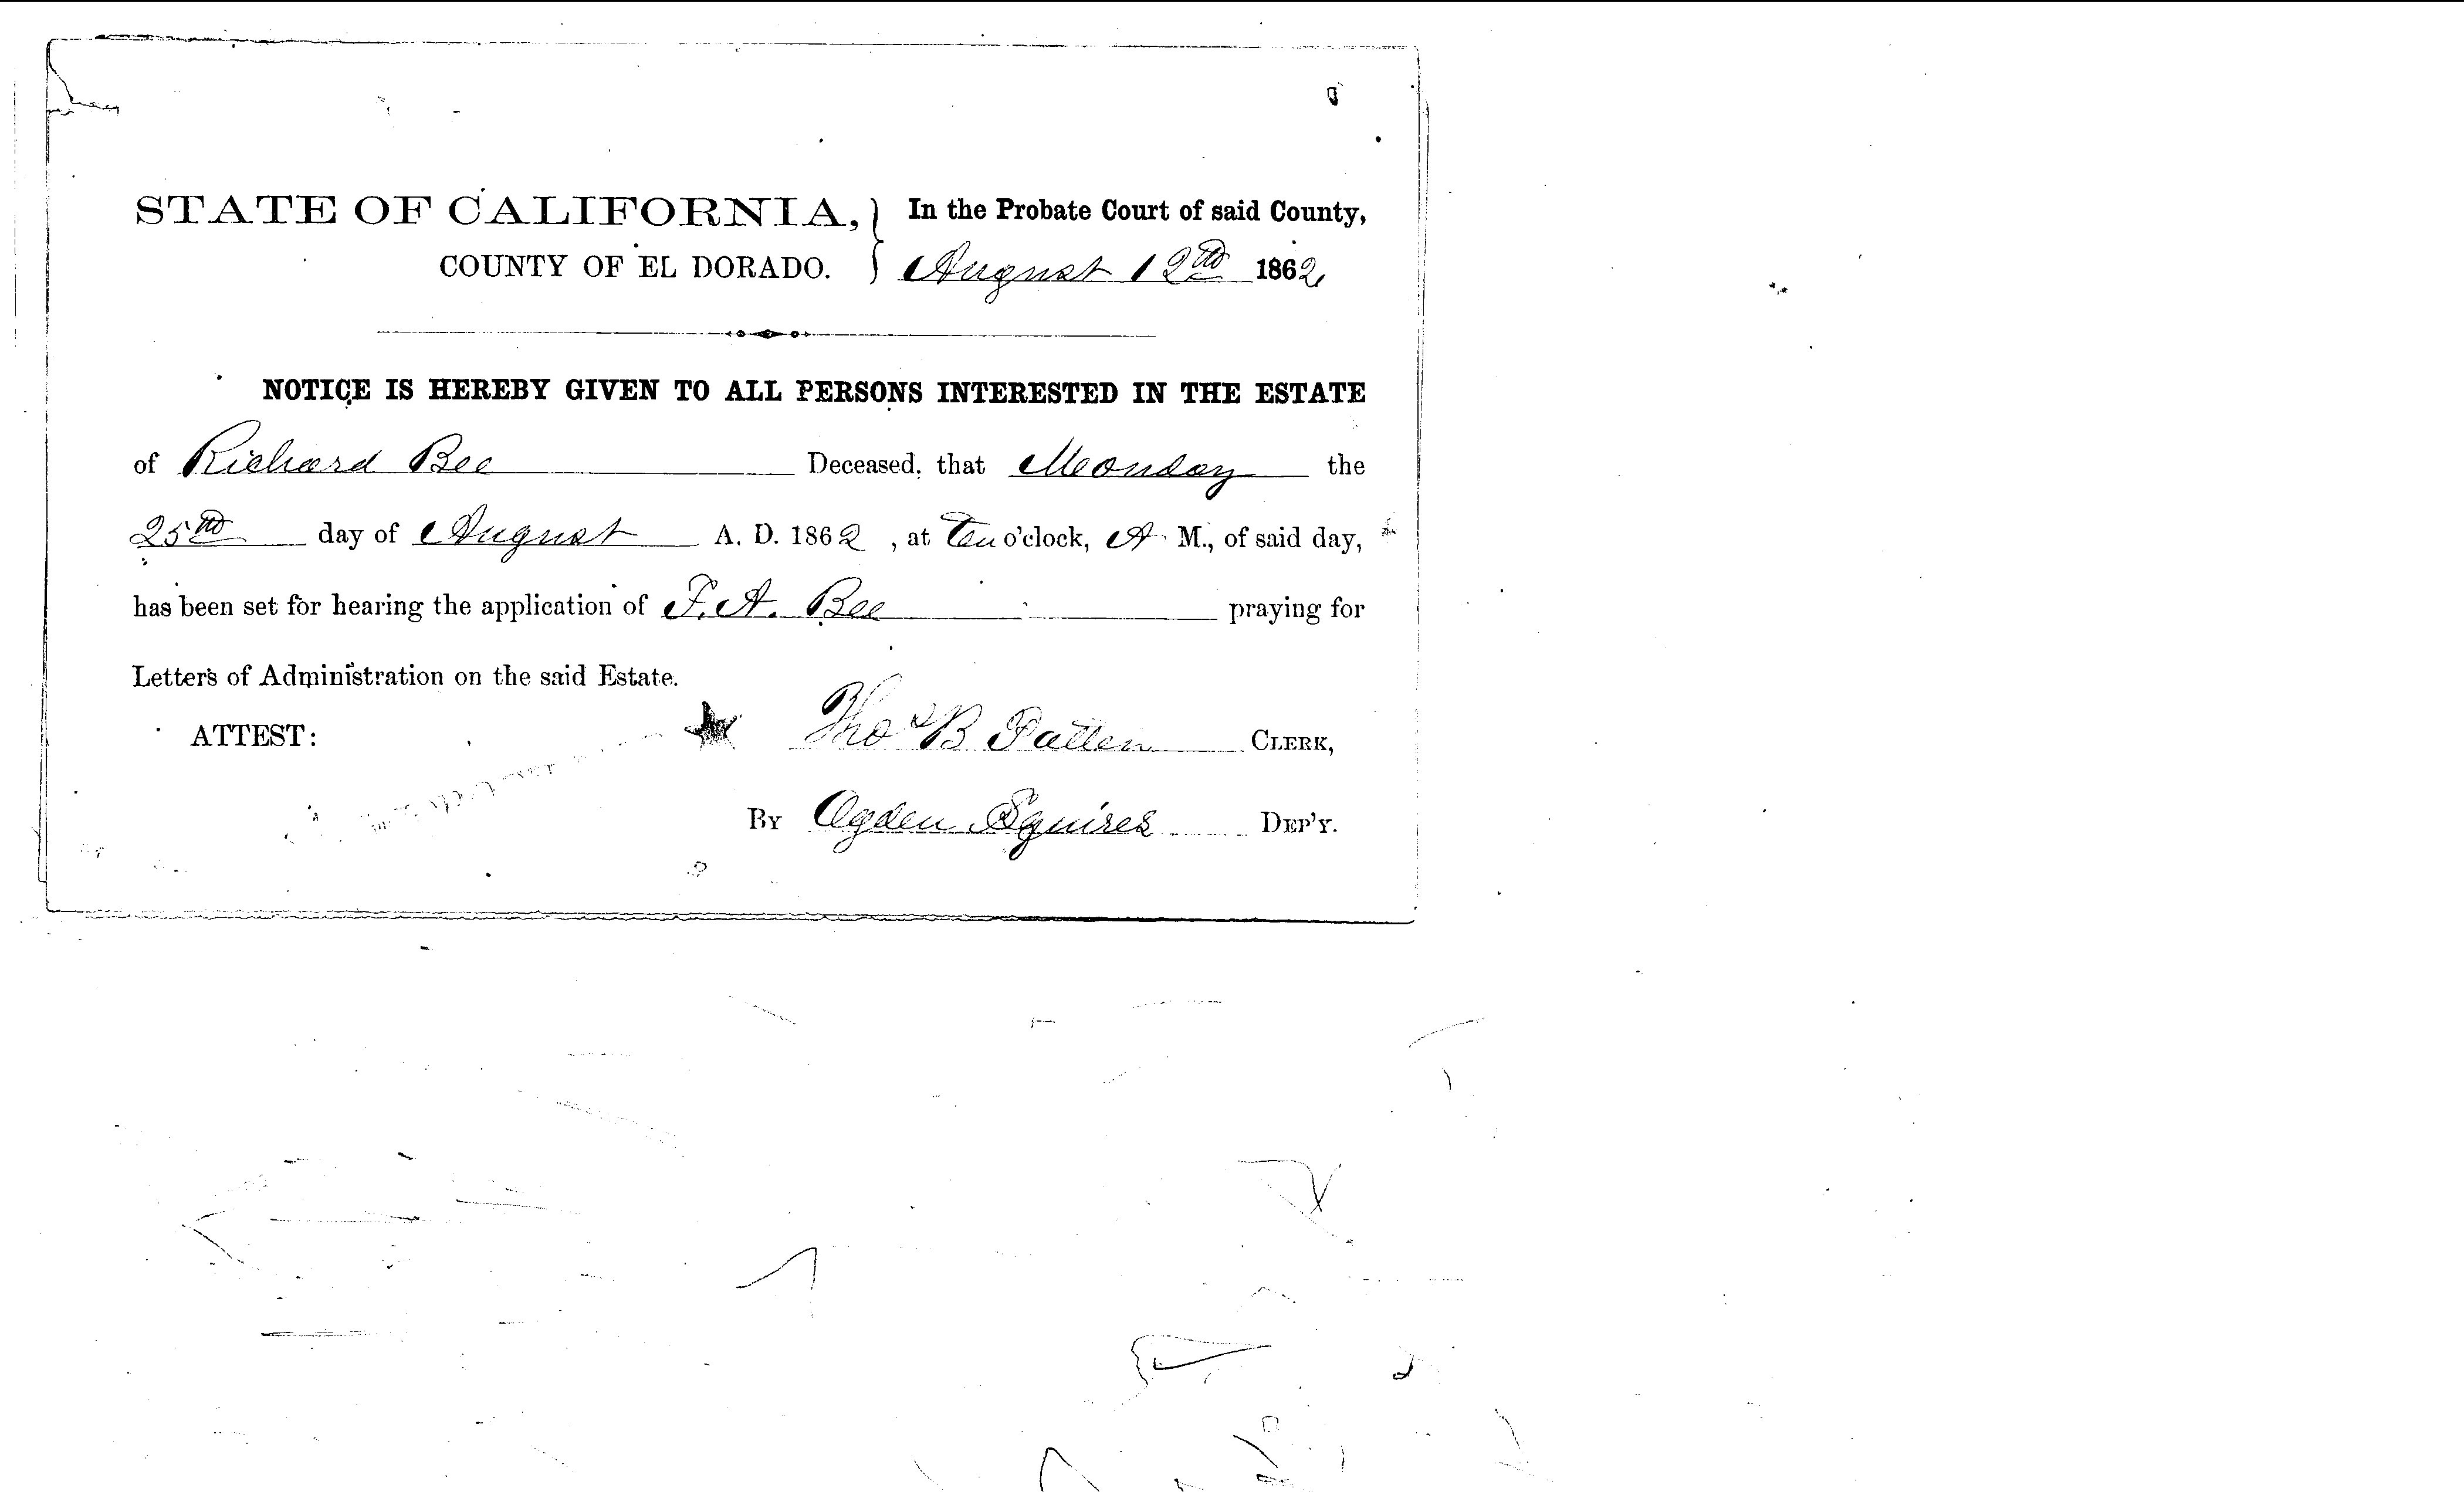 STATE OF CALIFORNIA, } In the Probate Court of said County,
COUNTY OF EL DORADO. } August 12th 1862
NOTICE IS HEREBY GIVEN TO ALL PERSONS INTERESTED IN THE ESTATE
of Richard Bee Deceased, that Monday the
25th day of August A. D. 1862, at Ten o'clock, A M., of said day,
has been set for hearing the application of F. A. Bee praying for
Letters of Administration on the said Estate.
ATTEST: Thos B Patten CLERK,
BY Ogden Squires DEP'Y.